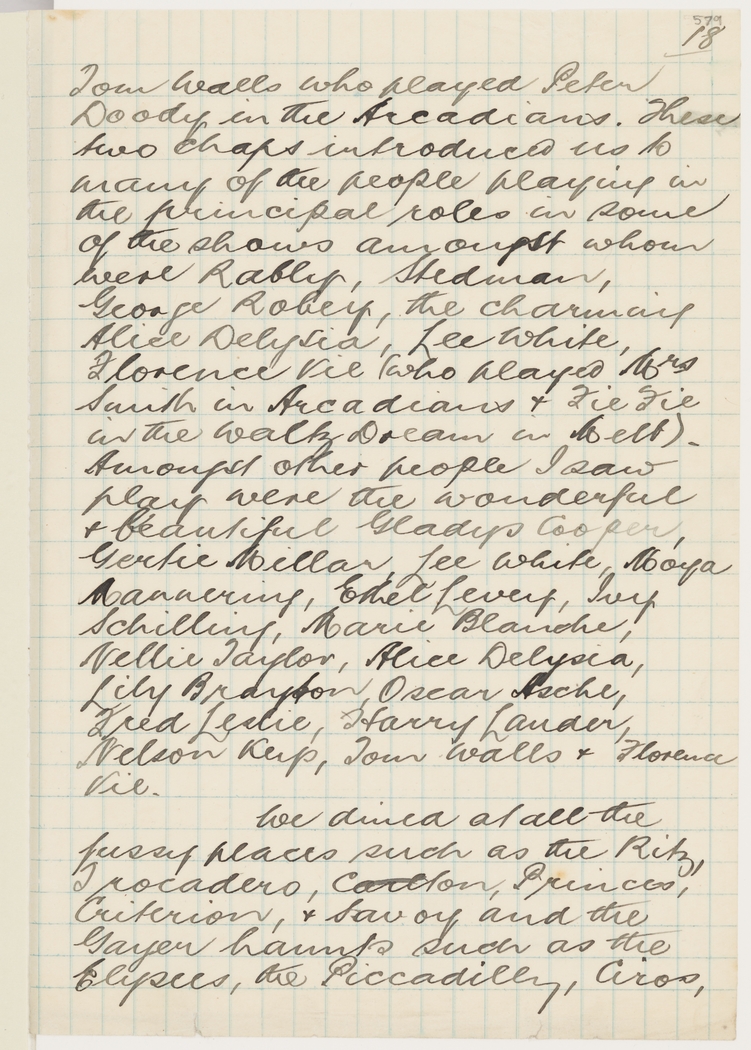 579
18
Tom Walls who played Peter
Doody in the Arcadians. These
two chaps introduced us to
many of the people playing in
the principal roles in some
of the shows amongst whom
were Rably, Stedman,
George Robey, the charming
Alice Delysia, Lee White,
Florence Vie (who played Mrs
Smith in Arcadians & Fie Fie
in the Waltz Dream in Melb).
Amongst other people I saw
play were the wonderful
& beautiful Gladys Cooper,
Gertie Millar, Lee White, Moya
Mannering, Ethel Levey, Ivy
Schilling, Marie Blanche,
Nellie Taylor, Alice Delysia,
Lily Brayton, Oscar Asche,
Fred Leslie, Harry Lauder,
Nelson Keys, Tom Walls & Florence
Vie.
We dined at all the
fussy places such as the Ritz,
Trocadero, Carlton, Princes,
Criterion, & Savoy and the
Gayer haunts such as the
Elysees, the Piccadilly, Ciros,